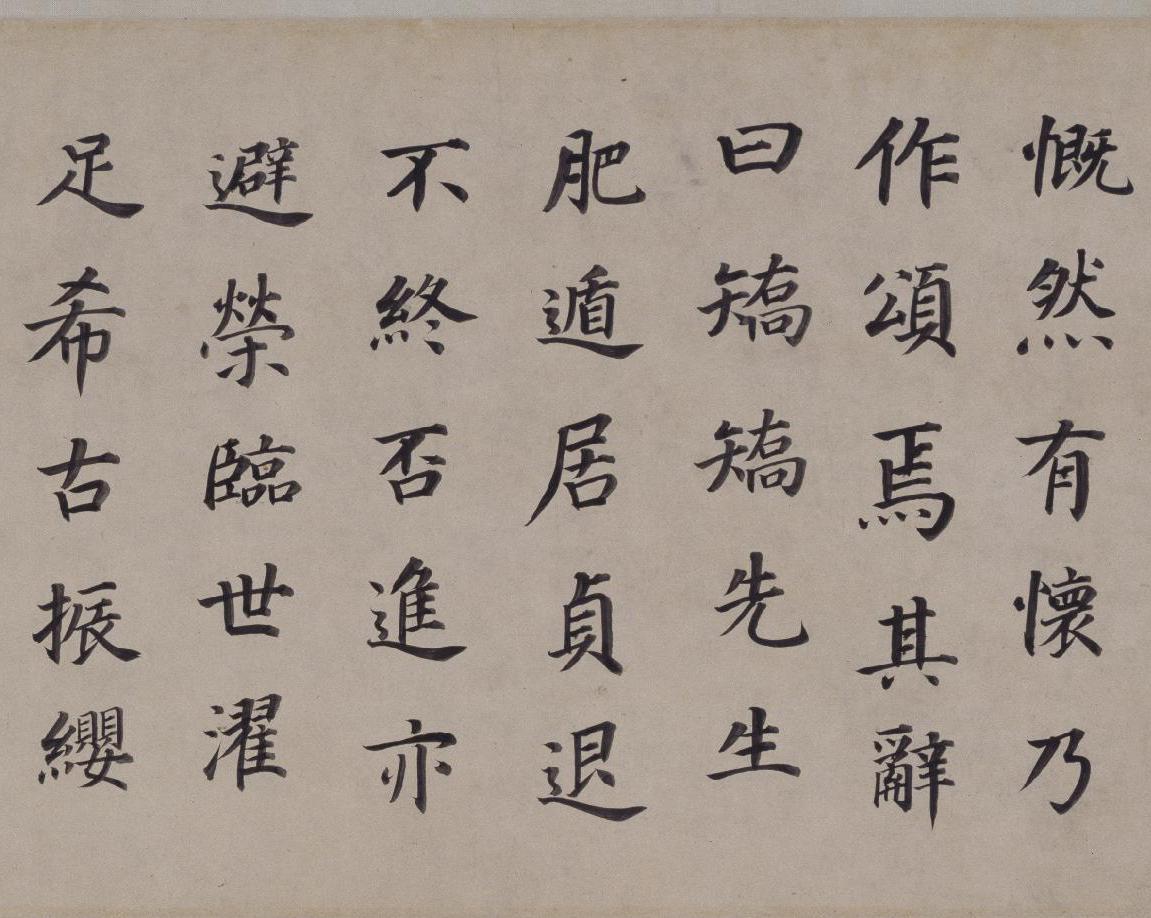 慨然有懷乃
作頌焉其辭
曰矯矯先生
肥遁居貞退
不終否進亦
避榮臨世濯
足希古振纓